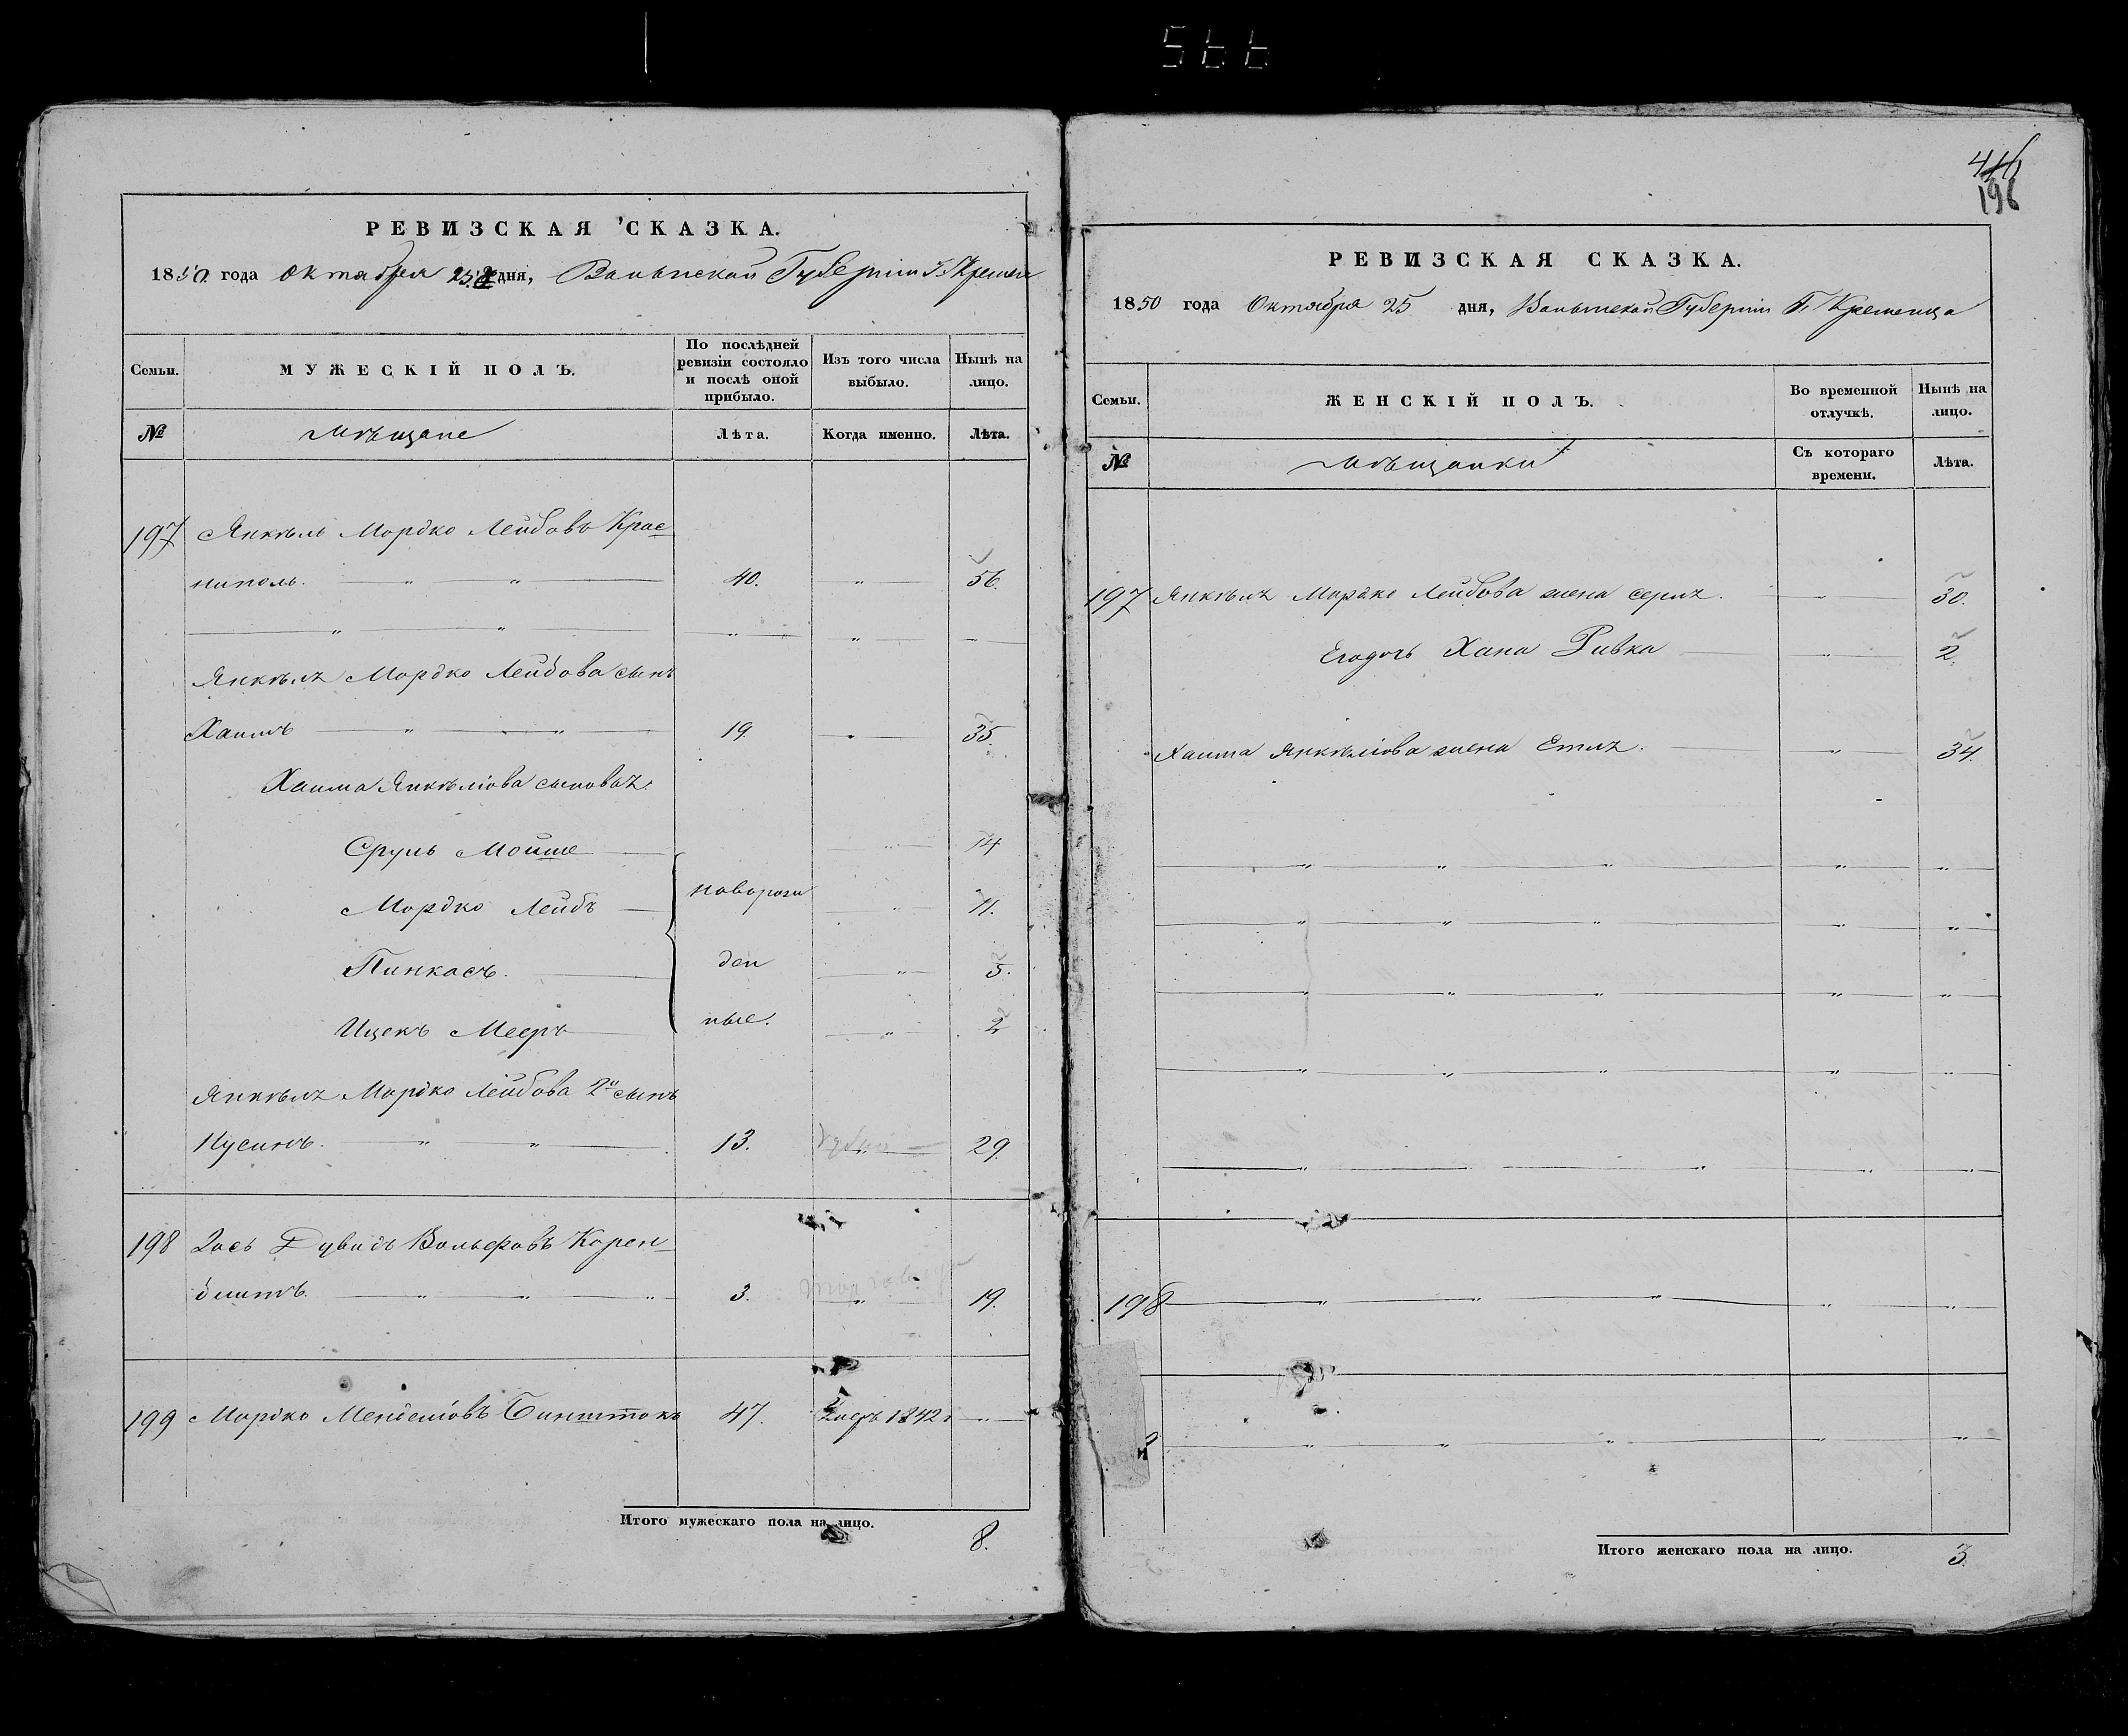 566
РЕВИЗСКАЯ СКАЗКА.
1850. года Октября 25 дня, Волынской Губерніи Г. Кремен
Семьи.
МУЖЕСКІЙ ПОЛЪ.
По послѣдней ревизіи состояло и послѣ оной прибыло.
Изъ того числа выбыло.
Нынѣ на лицо.
№
Мѣщане
Лѣта.
Когда именно.
Лѣта.
197 Янкель Мордко Лейбовъ Крас-
ниполь. 40. 56.
Янкеля Мордко Лейбова сынъ
Хаимъ 19. 35.
Хаима Янкелiова сыновья:
Сруль Мойше 14
Мордко Лейбъ новорож 11.
Пинкасъ. ден 5.
Ицекъ Мееръ ные. 2
Янкеля Мордко Лейбова 2й сынъ
Нусинъ. 13. 29.
198 Дувидъ Вольфовъ Корен-
блитъ. 3. 19.
199 Мордко Менделiовъ Бинштокъ 47. умеръ 1842
Итого мужескаго пола на лицо. 8.
416
196
РЕВИЗСКАЯ СКАЗКА.
1850 года Октября 25 дня, Волынской Губерніи Г. Кременца
Семьи.
ЖЕНСКІЙ ПОЛЪ.
Во временной отлучкѣ.
Нынѣ на лицо.
№
Мѣщанки
Съ котораго времени.
Лѣта.
197 Янкеля Мордко Лейбова жена 30.
Егодочь Хана Ривка 2.
Хаима Янкелiова жена Етля. 34.
198
Итого женскаго пола на лицо. 3.